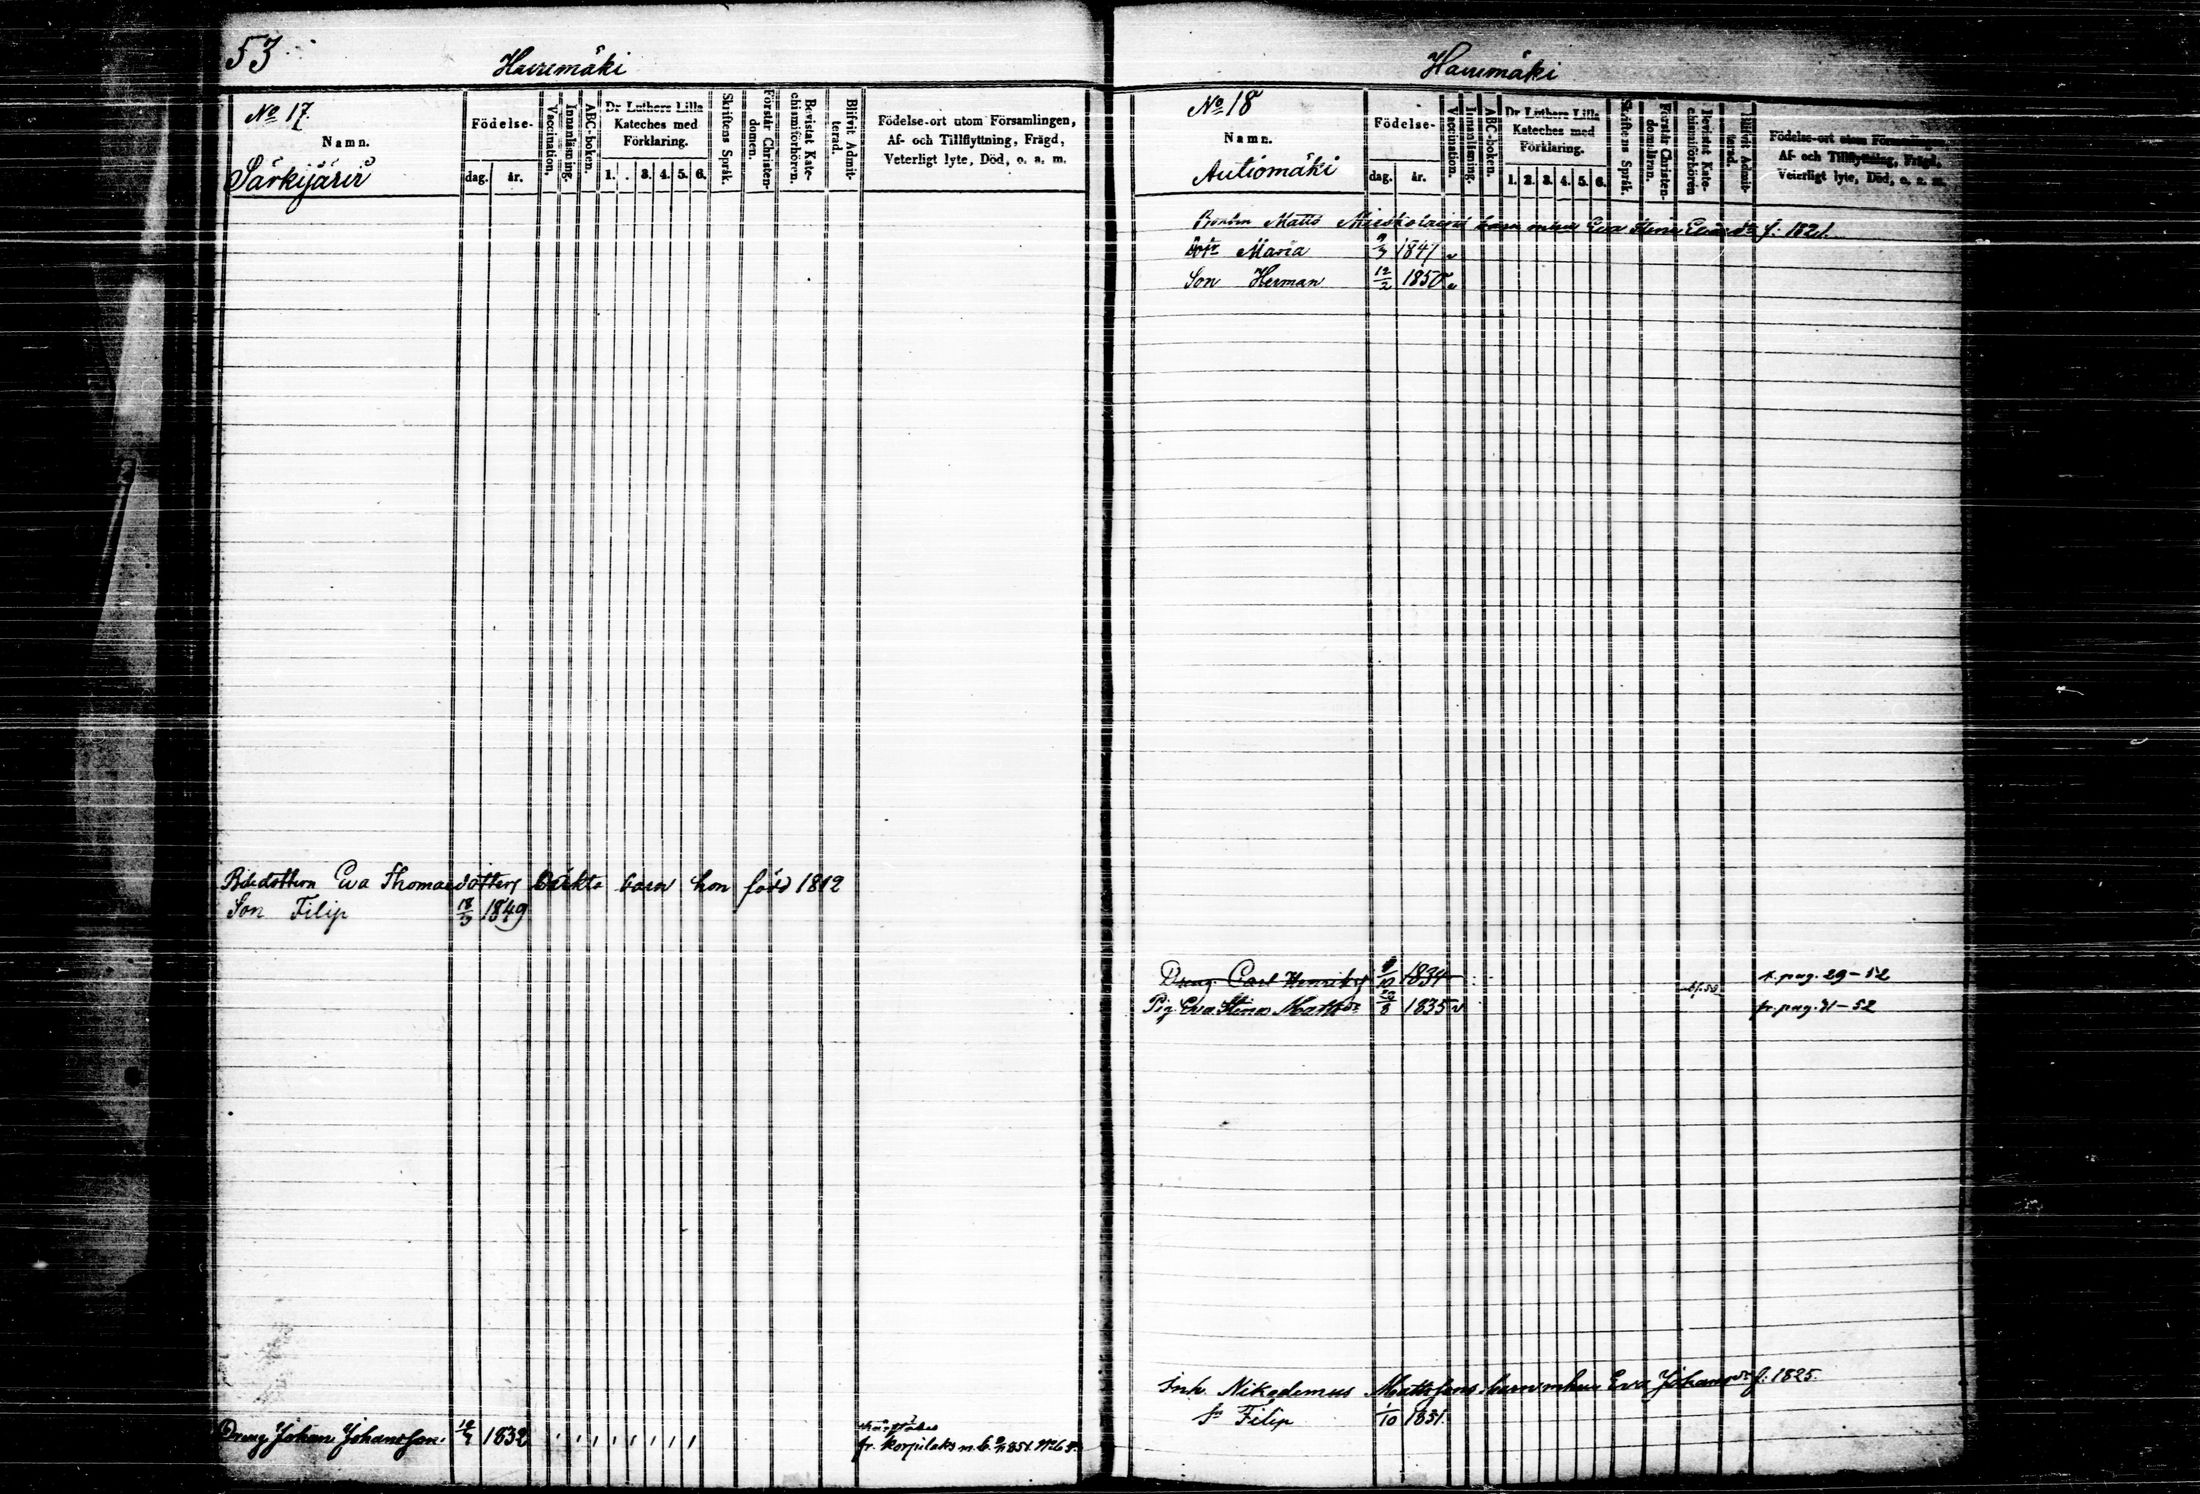 53
Havumäki
No 17.
Namn.
Särkijärvi
Födelse-
dag. år.
Vaccination.
Innanläsning.
ABC-boken.
Dr Luthers Lilla
Kateches med
Förklaring.
1. 3. 4. 5. 6.
Skriftens Språk.
Förstår Christen-
domen.
Bevistat Kate-
chismiförhören.
Blifvit Admit-
terad.
Födelse-ort utom Församlingen,
Af- och Tillflyttning, Frägd,
Veterligt lyte, Död, o. a. m.
Eva Thomasdotters oäkta barn hon född 1812
Son Filip 18/3 1849
Dreng Johan Johansson. 1832
fr. Korpilaks m. b.
Havumäki
No 18
Namn.
Autiomäki
Födelse-
dag. år.
Vaccination.
Innanläsning.
ABC-boken.
Dr Luthers Lilla
Kateches med
Förklaring.
1. 2. 3. 4. 5. 6.
Skriftens Språk.
Förstår Christen-
domsläran.
Bevistat Kate-
chismiförhören
Blifvit Admit-
terad.
Födelse-ort utom Församlingen,
Af- och Tillflyttning, Frägd,
Veterligt lyte, Död, o. a. m.
Bonden Matts barn Eva Stina f. 1821.
Dotr Maria 9/3 1841 v
Son Herman 12/2 1850 v
Dreng Carl Henriks 1834 f. pag. 29-52
Pig. Eva Stina Mattsdr 1835 v fr. pag. 41-52
Inh. Nikodemus Mattssons barn Eva Johansdr f. 1825.
Sn Filip 1/10 1851.